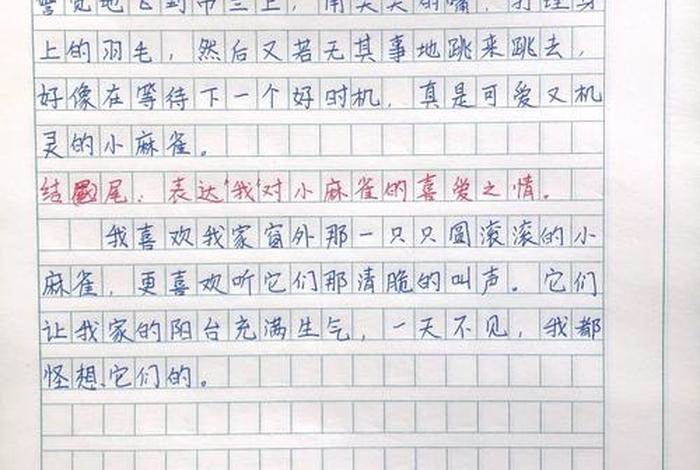 警觉地飞到吊兰上，用尖尖的嘴，打理身
上的羽毛，然后又若无其事地跳来跳去，
好像在等待下一个好时机，真是可爱又机
灵的小麻雀。
结尾：表达“我”对小麻雀的喜爱之情。
我喜欢我家窗外那一只只圆滚滚的小
麻雀，更喜欢听它们那清脆的叫声。它们
让我家的阳台充满生气，一天不见，我都
怪想它们的。